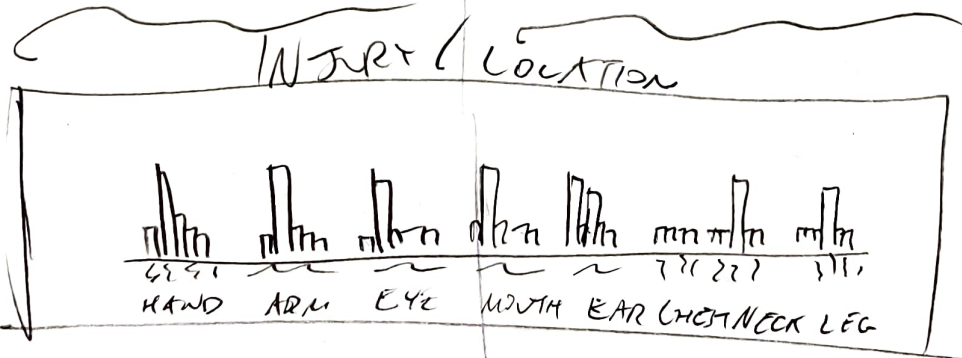 INJURY / LOCATION
HAND ARM EYE MOUTH EAR CHEST NECK LEG